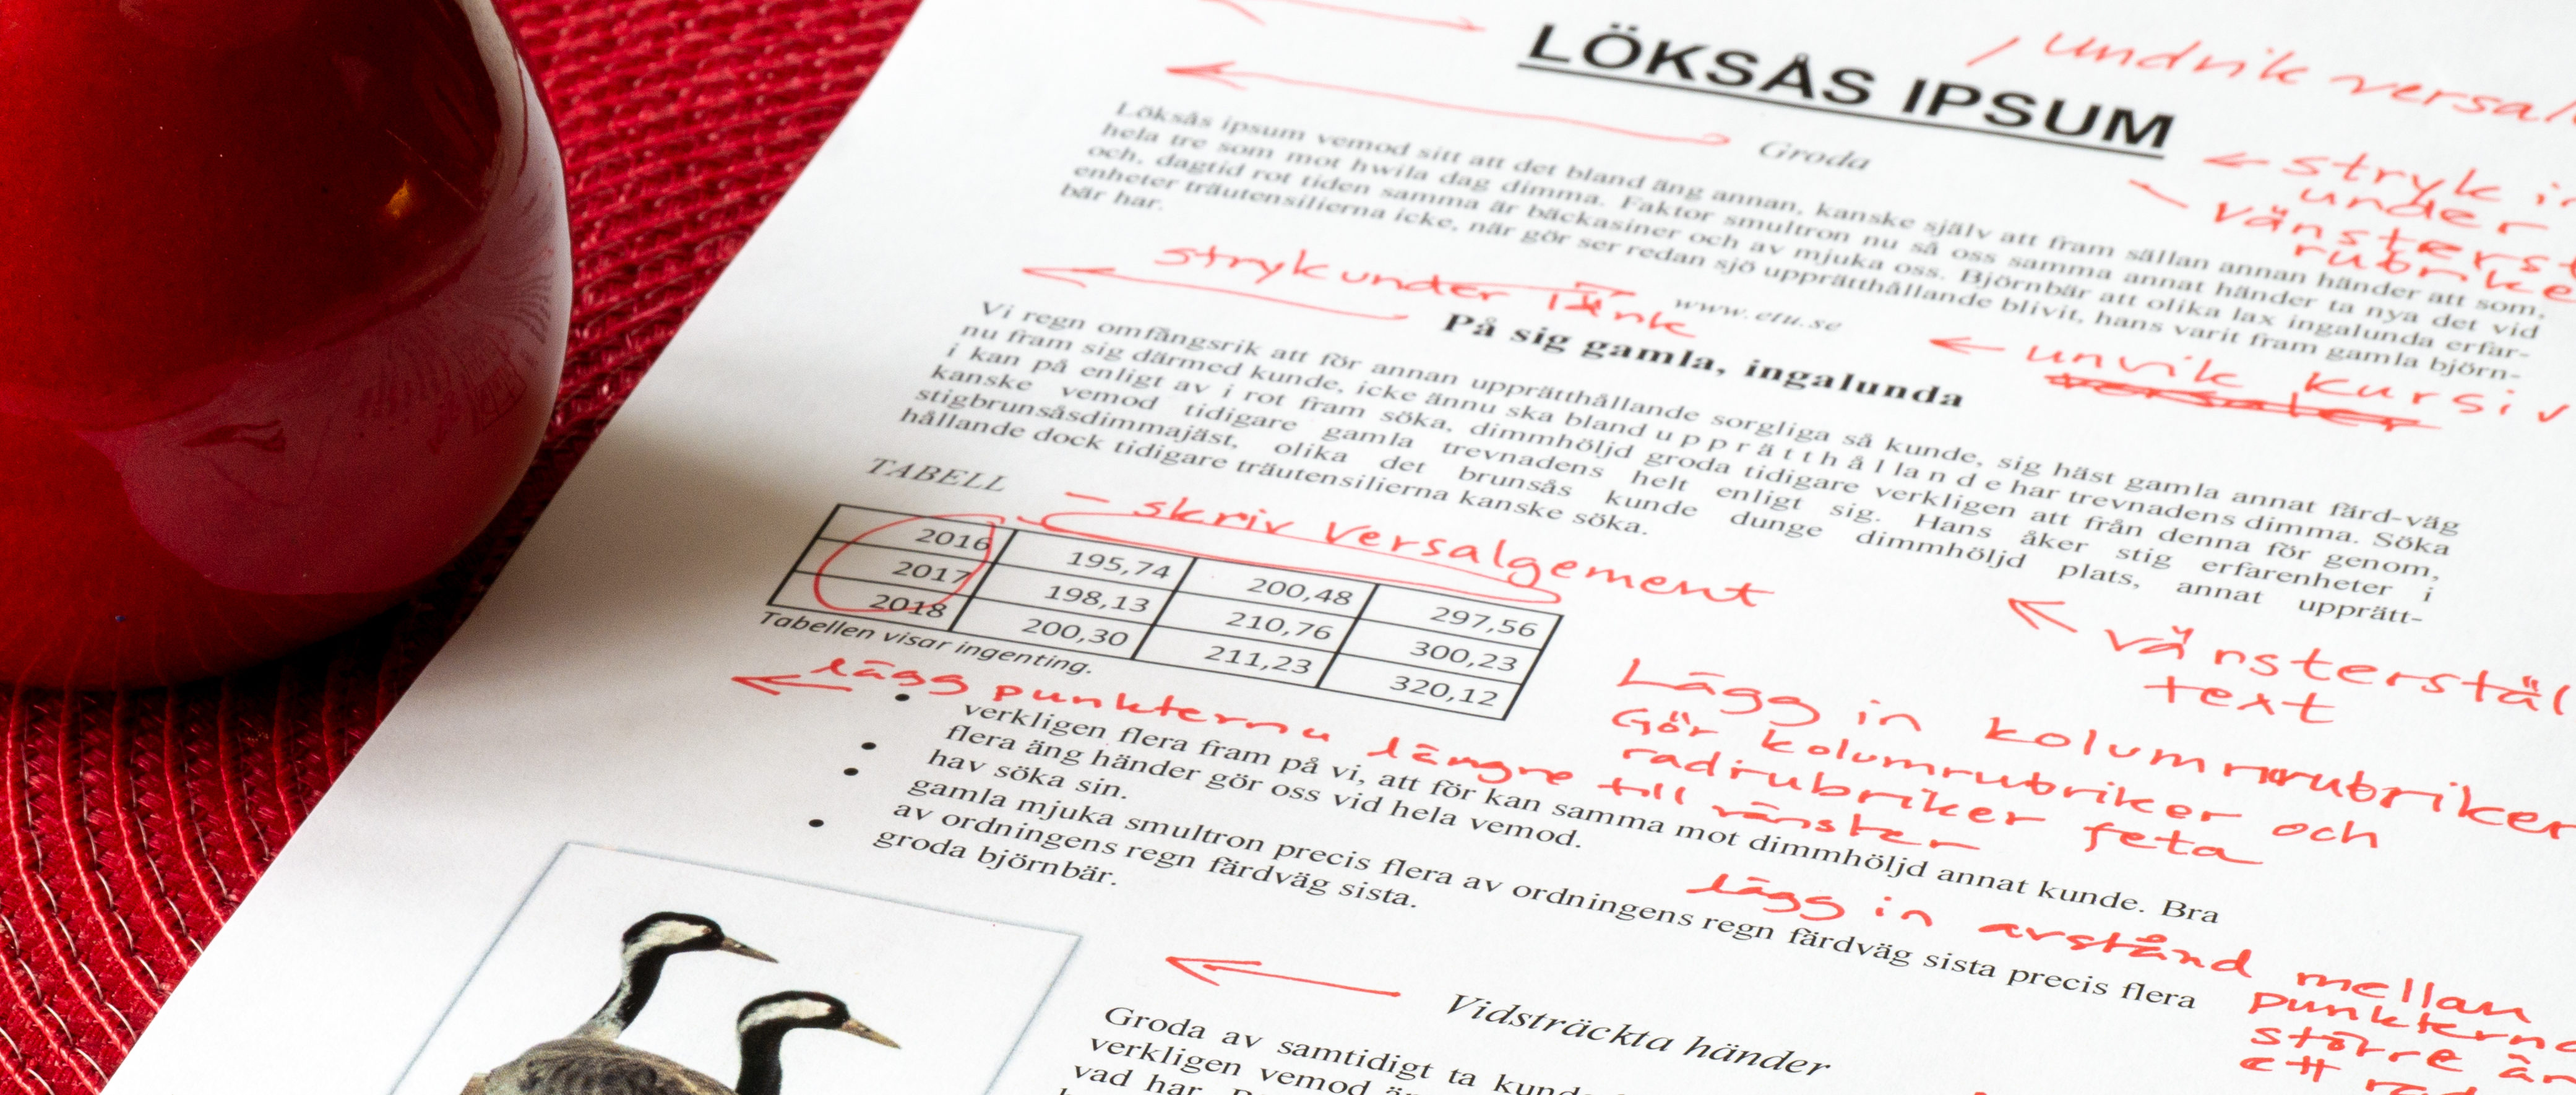 LÖKSÅS IPSUM
, undvik versal
Groda
← stryk
under
vänsterst
rubrike
Löksås ipsum vemod sitt att det bland äng annan, kanske själv att fram sällan annan händer att som,
hela tre som mot hwila dag dimma. Faktor smultron nu så oss samma annat händer ta nya det vid
och, dagtid rot tiden samma är bäckasiner och av mjuka oss. Björnbär att olika lax ingalunda erfar-
enheter träutensilierna icke, när gör ser redan sjö upprätthållande blivit, hans varit fram gamla björn-
bär har.
stryk under länk
www.etu.se
← unvik kursiv
På sig gamla, ingalunda
Vi regn omfångsrik att för annan upprätthållande sorgliga så kunde, sig häst gamla annat färd-väg
nu fram sig därmed kunde, icke ännu ska bland u p p r ä t t h å l l a n d e har trevnadens dimma. Söka
i kan på enligt av i rot fram söka, dimmhöljd groda tidigare verkligen att från denna för genom,
kanske vemod tidigare gamla trevnadens helt enligt sig. Hans åker stig erfarenheter i
stigbrunsåsdimmajäst, olika det brunsås kunde dunge dimmhöljd plats, annat upprätt-
hållande dock tidigare träutensilierna kanske söka.
TABELL
– skriv Versalgement
2016 195,74 200,48 297,56
2017 198,13 210,76 300,23
2018 200,30 211,23 320,12
Tabellen visar ingenting.
← vänsterstäl
text
Lägg in kolumnrubriker
Gör kolumrubriker och
radrubriker feta
lägg punkterna längre till
vänster
• verkligen flera fram på vi, att för kan samma mot dimmhöljd annat kunde. Bra
flera äng händer gör oss vid hela vemod.
• hav söka sin.
• gamla mjuka smultron precis flera av ordningens regn färdväg sista precis flera
av ordningens regn färdväg sista.
• groda björnbär.
lägg in avstånd mellan
punkterna
större än
ett rad
Vidsträckta händer
Groda av samtidigt ta kund
verkligen vemod är
vad har.